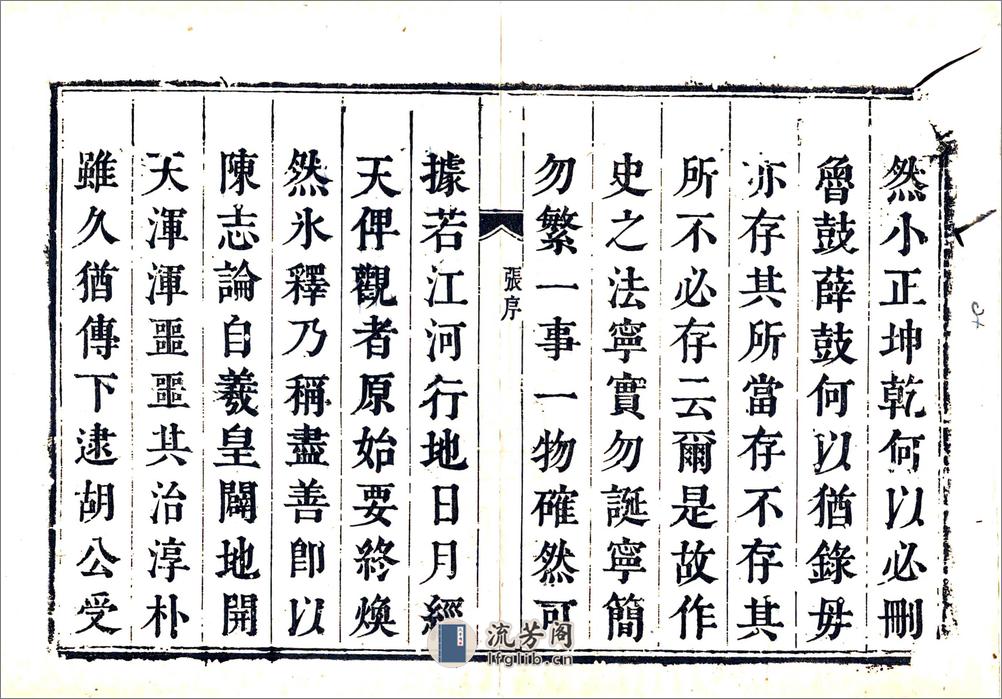 然小正坤乾何以必刪
魯鼓薛鼓何以猶錄毋
亦存其所當存不存其
所不必存云爾是故作
史之法寧實勿誕寧簡
勿繁一事一物確然可
張序
據若江河行地日月經
天俾觀者原始要終煥
然氷釋乃稱盡善卽以
陳志論自羲皇闢地開
天渾渾噩噩其治淳朴
雖久猶傳下逮胡公受
流芳阁
lfglib.cn